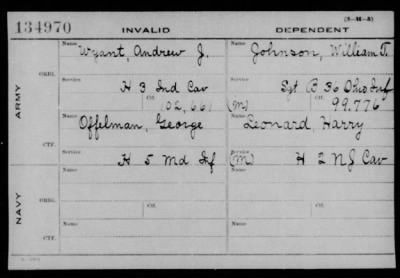 (3-H-3)
134970 INVALID DEPENDENT
ARMY
ORIG.
Name Wyant, Andrew J. Name Johnson, William T.
Service H 3 Ind Cav Service Sgt B 36 Ohio Inf
Ctf. 102,661 (M) Ctf. 99.776
CTF.
Name Offelman, George Name Leonard, Harry
Service H 5 Md Inf Service (M) H 2 NJ Cav
NAVY
ORIG.
Name Name
Service Ctf. Service Ctf.
CTF.
Name Name
Service Service